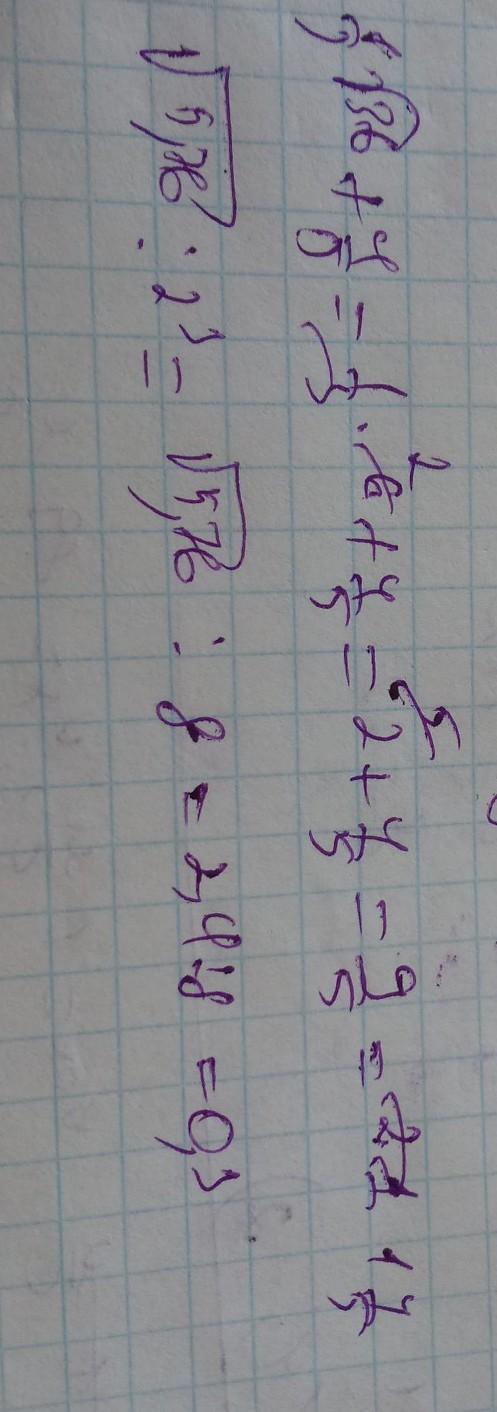 1/3 √36 + 4/5 = 1/3 · 6 + 4/5 = 2 + 4/5 = 9/5 = 1
√5,76 : 2³ = √5,76 : 8 = 2,4:8 = 0,3